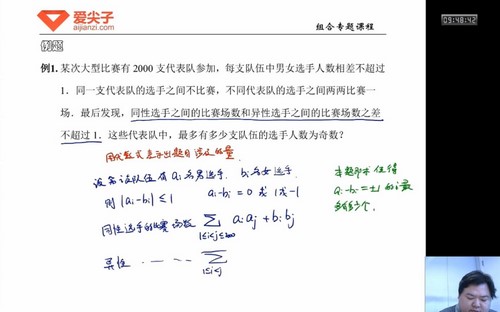 爱尖子
aijianzi.com
组合专题课程
09:48:42
例题
例1. 某次大型比赛有 2000 支代表队参加，每支队伍中男女选手人数相差不超过
1．同一支代表队的选手之间不比赛，不同代表队的选手之间两两比赛一
场．最后发现，同性选手之间的比赛场数和异性选手之间的比赛场数之差
不超过 1．这些代表队中，最多有多少支队伍的选手人数为奇数？
用代数式表示出题目涉及的量
设第i支队伍有 aᵢ 名男选手 bᵢ名女选手
则 |aᵢ-bᵢ| ≤ 1 aᵢ-bᵢ = 0 或 1或-1
本题即求 使得
aᵢ-bᵢ=±1 的i最
多有多少个.
同性选手的比赛场数 ∑ aᵢaⱼ + bᵢbⱼ
1≤i<j≤2000
异性 · — · · ∑
1≤i<j